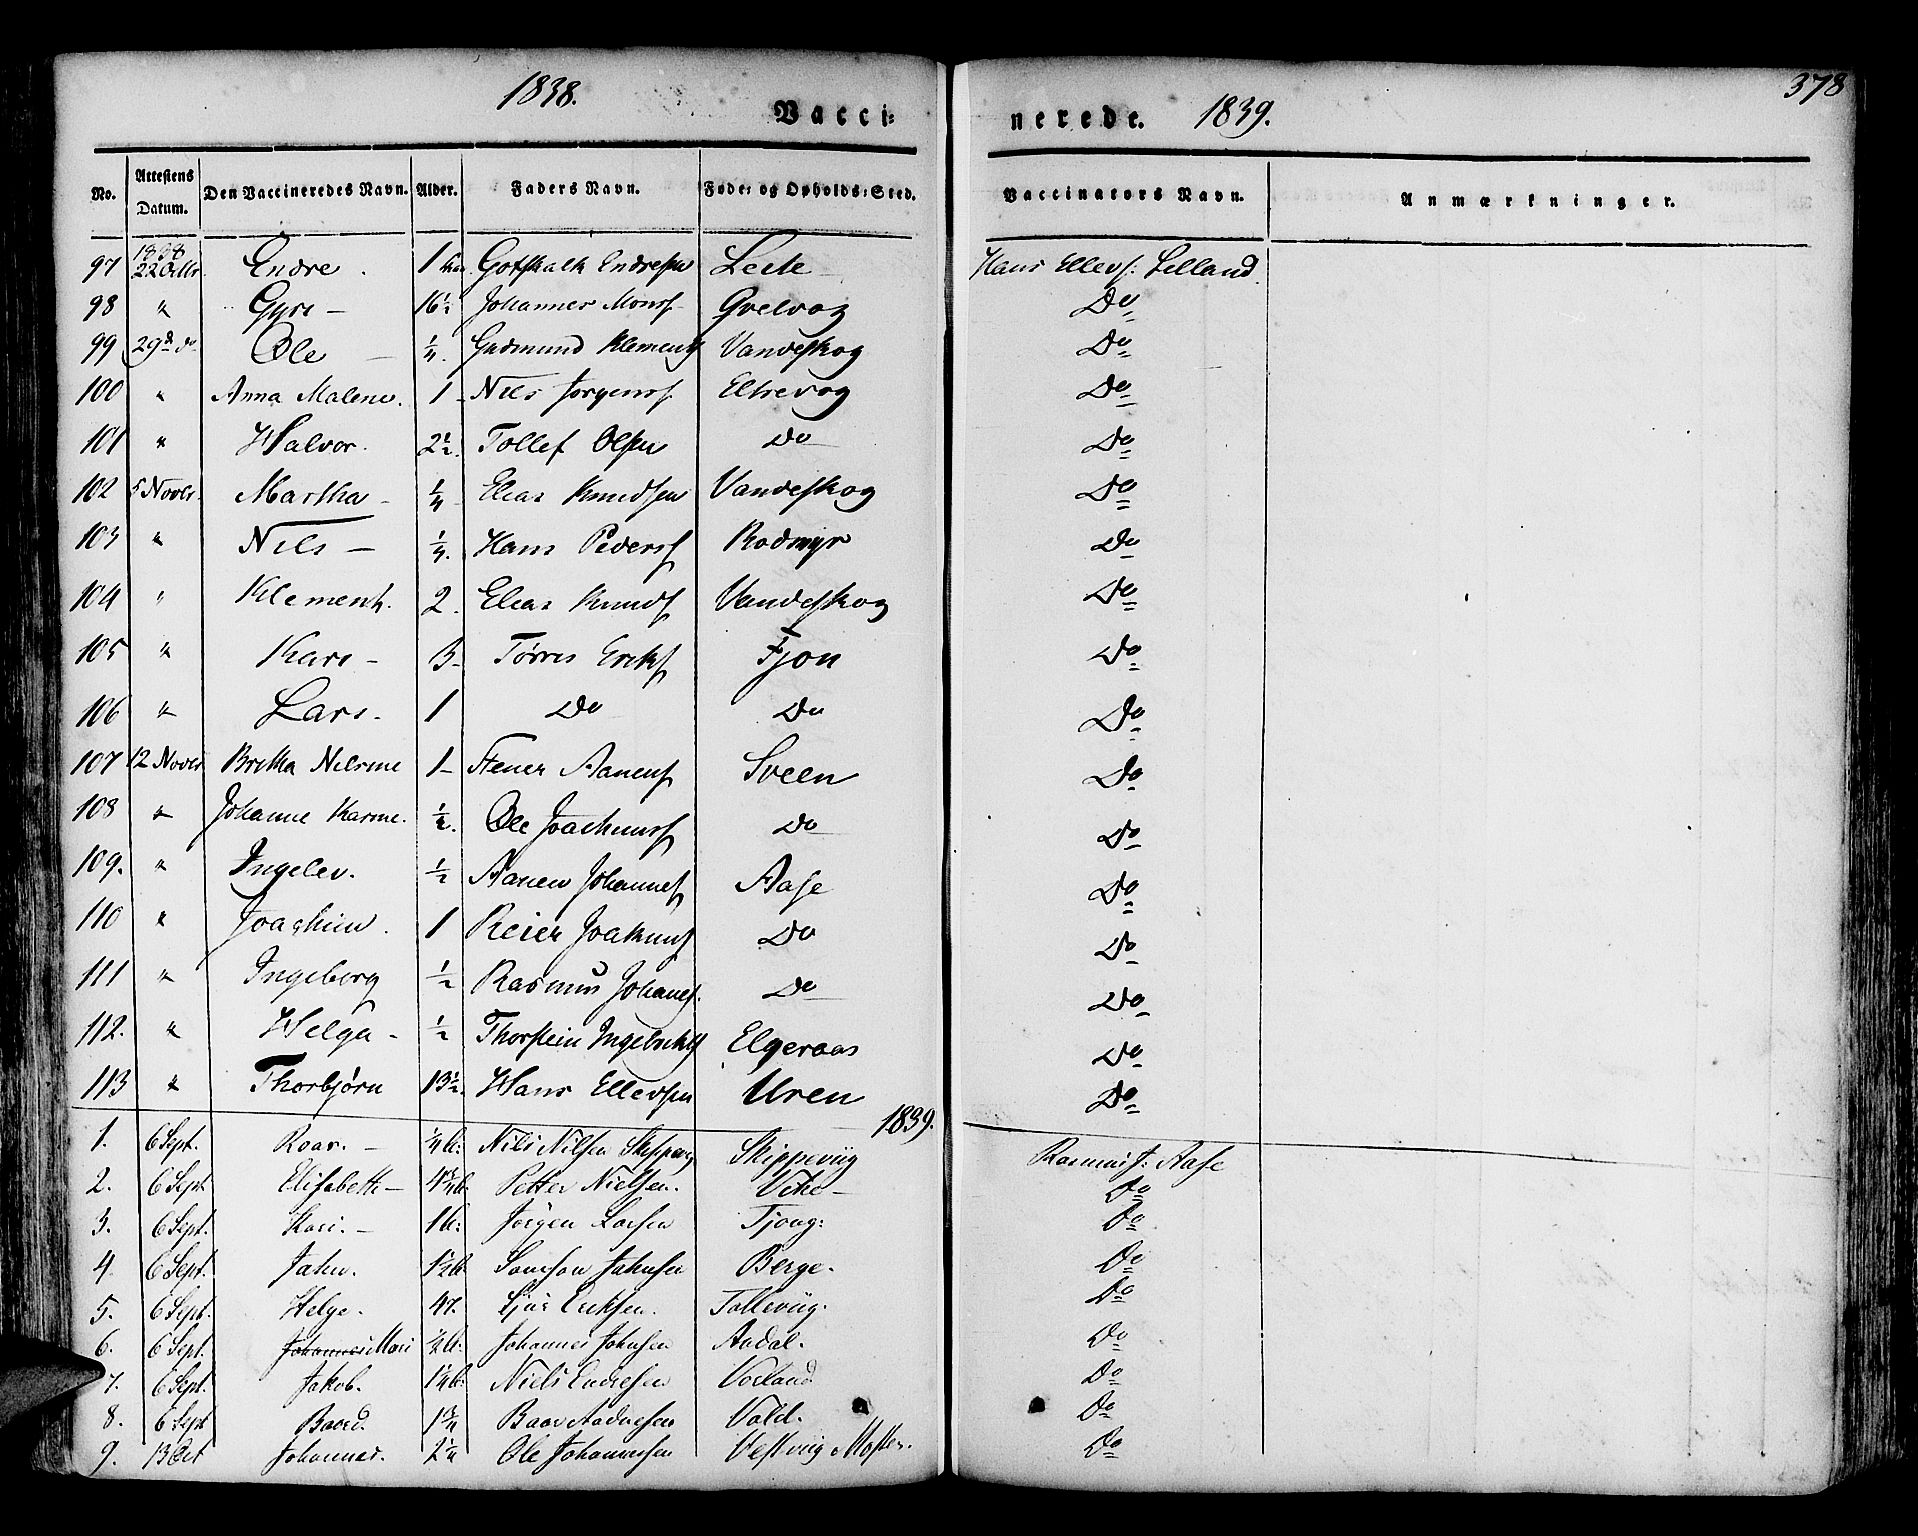 1838.
Vacci-
nerede. 1839.
378
No. Attestens Datum. Den Vaccineredes Navn. Alder. Faders Navn. Føde- og Opholds-Sted. Vaccinators Navn. Anmærkninger.
97 1838 22 Octbr. Endre. 1 Gotskalk Endresen Leete Hans Ellevs: Lilland.
98 " Gyri - 16½ Johannes Monsf Qvelvog Do
99 29de do Ole - ¼. Gudmund Klements Vandeskog Do
100 " Anna Malene. 1 - Nils Jorgensf Eltrevog Do
101 " Halvor. 2½. Tollef Olsen Do Do
102 5 Novbr. Martha - ¼ Elias Knudsen Vandeskog Do
103 " Nils - ¼. Hans Pedersf Rodmyr Do
104 " Klement. 2. Elias Knudsf Vandeskog Do
105 " Kari - 3 - Tørres Eriksf Fjon Do
106 " Lars. 1 Do Do Do
107 12 Novbr Britha Nilsine 1 - Stener Aanensf Sveen Do
108 " Johanne Karine. ½. Ole Joachimsf Do Do
109. " Ingelev. ½ Aanen Johannesf Aase Do
110 " Joachim. 1 Reier Joakimsf Do Do
111 " Ingeborg ½ Rasmus Johanesf. Do Do
112. " Helga - ½ Thorstein Ingebrektsf Elgeraas Do
113 " Thorbjørn 13½. Hans Ellevsen Uren Do
1839.
1. 6 Sept. Roar. - ¼ Nils Nilsen Skippevig Skippeviig Rasmus J: Aase
2. 6 Sept Elisabeth - Petter Nielsen. Vihe - Do
3. 6 Sept. Kari. - 1 Jørgen Larsen Tjong: Do
4. 6 Sept. Jahn. 1½ Samson Jahnsen Berge. Do
5. 6 Sept. Helge. 47. Sjur Eriksen. Tolleviig. Do
6. 6 Sept. Johannes Mari ½ Johannes Johnsen Aadal. Do
7. 6 Sept. Jakob. Niels Endresen Vorland Do
8. 6 Sept Baard. 1¾ Baar Aadnesen Vold. Do
9. 13 Oct Johannes. 2¼ Ole Johannessen Vestviig Moster. Do